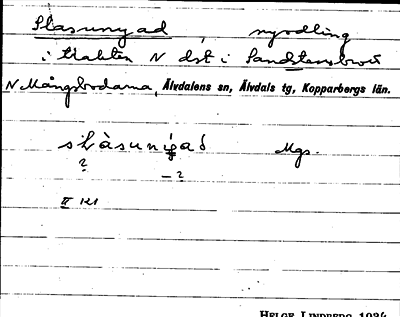 Stasunyad, nyodling
i trakten N dst i Sandstensbrott
N Mångsbodarna, Älvdalens sn, Älvdals tg, Kopparbergs län.
Mgs.
?
– ?
II 121
HELGE LINDBERG 1934